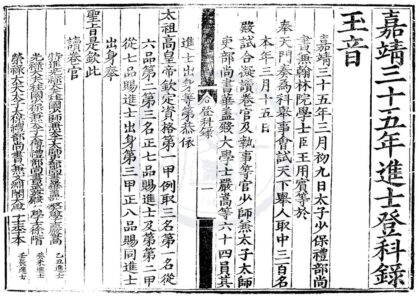 嘉靖三十五年進士登科錄
玉音
嘉靖三十五年三月初九日太子少保禮部尚
書兼翰林院學士臣王用賓等於
奉天門奏為科舉事會試天下舉人取中三百名
本年三月十五日
殿試合擬讀卷官及執事等官少師兼太子太師
吏部尚書華蓋殿大學士嚴嵩等六十四員其
進士出身等第恭依
登科錄
太祖高皇帝欽定資格第一甲例取三名第一名從
六品第二第三名正七品賜進士及第第二甲
從七品賜進士出身第三甲正八品賜同進士
出身奉
聖旨是欽此
讀卷官
乙丑進士
癸未進士
壬辰進士